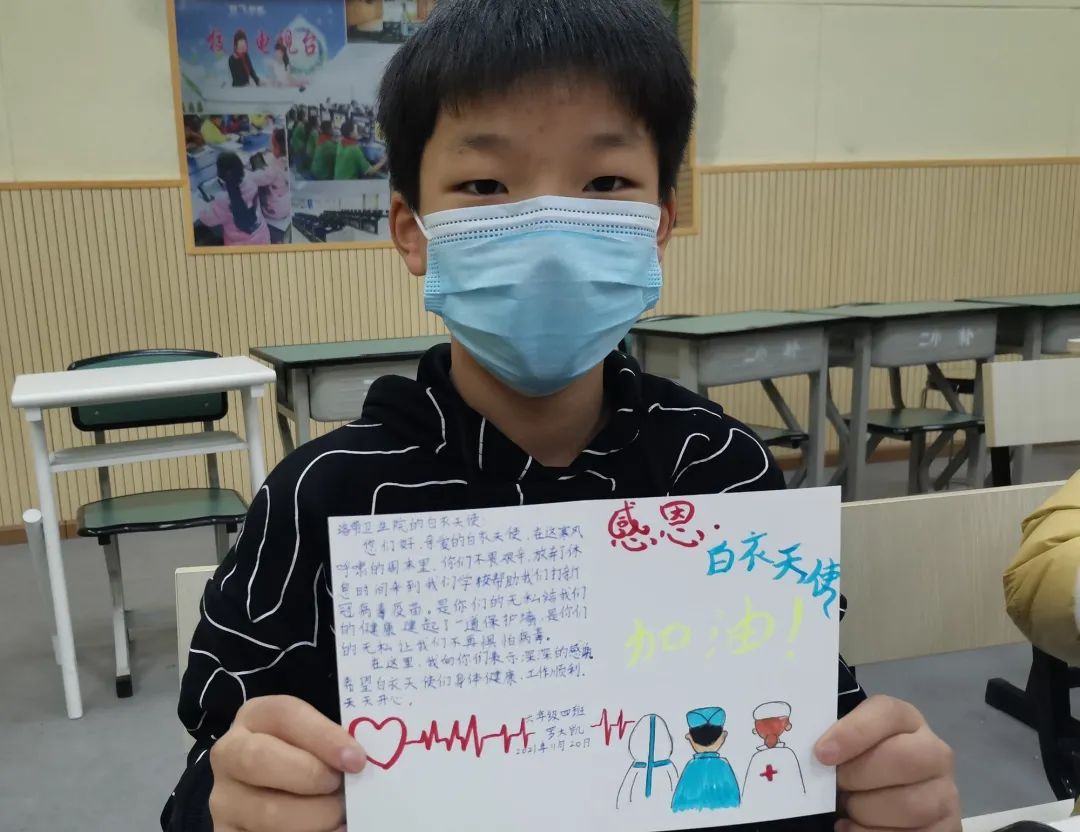 电视台
洛带卫生院的白衣天使:
您们好,亲爱的白衣天使,在这寒风
呼啸的周末里,你们不畏艰辛,放弃了休
息时间来到我们学校帮助我们打新
冠病毒疫苗。是你们的无私给我们
的健康建起了一道保护墙,是你们
的无私让我们不再惧怕病毒。
在这里,我向你们表示深深的感谢
希望白衣天使们身体健康,工作顺利,
天天开心。
六年级四班
罗大凯
2021年11月20日
感恩.
白衣天使
加油!
二小
二小